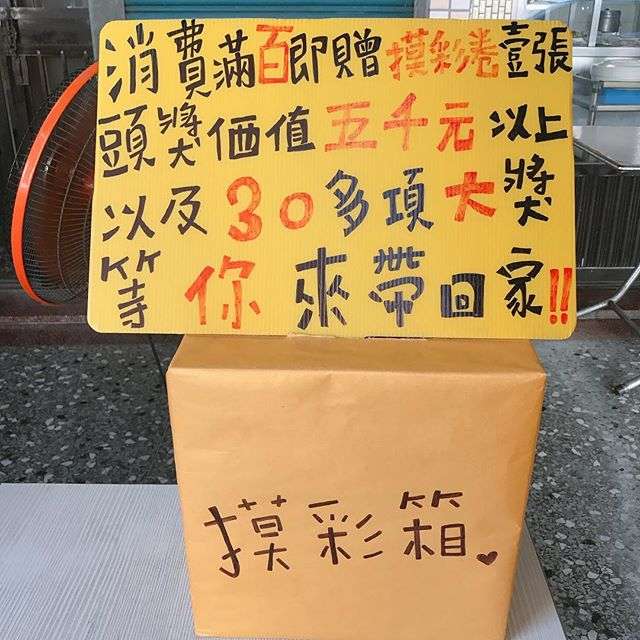 消費滿百即贈摸彩卷壹張
頭獎価值五千元以上
以及30多項大獎
等你來帶回家!!
摸彩箱